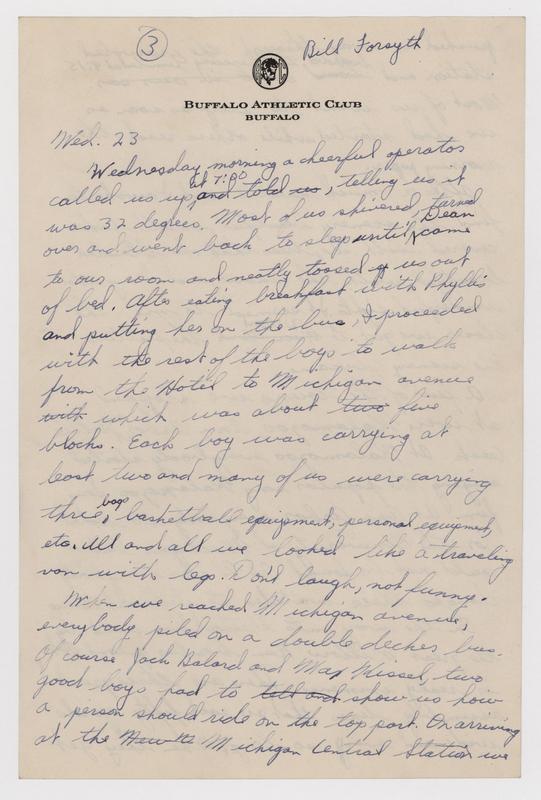 3
Bill Forsyth
BUFFALO ATHLETIC CLUB
BUFFALO
Wed. 23
Wednesday morning a cheerful operator
at 7:00
called us up, and told us, telling us it
was 32 degrees. Most of us shivered, turned
over and went back to sleep until Dean came
to our room and neatly toosed us out
of bed. After eating breakfast with Phyllis
and putting her on the bus, I proceeded
with the rest of the boys to walk
from the Hotel to Michigan avenue
with which was about two five
blocks. Each boy was carrying at
least two and many of us were carrying
three, bags basketball equipment, personal equipment,
etc. All and all we looked like a traveling
van with legs. Don't laugh, not funny.
When we reached Michigan avenue,
everybody piled on a double decker bus.
Of course Jack Balard and Max Kissel, two
good boys had to tell and show us how
a person should ride on the top part. On arriving
at the Michigan Central Station we